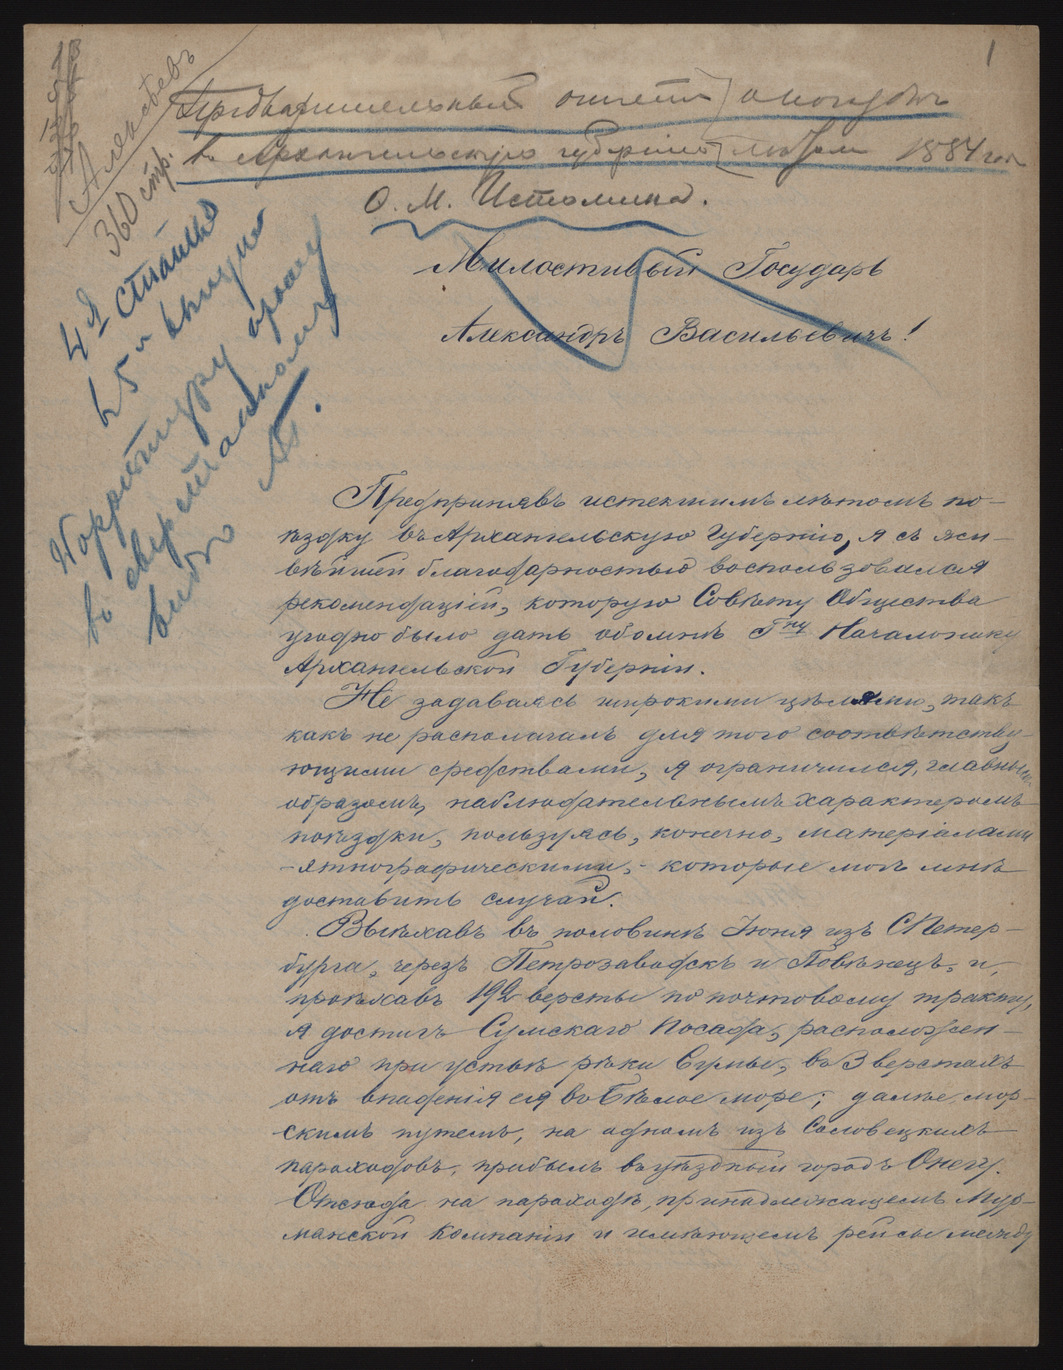 1
Алексѣевъ
360 стр.
Предварительный отчетъ о поѣздкѣ
въ Архангельскую губернію лѣтомъ 1884 года
Ѳ. М. Истомина.
4я статья
въ 5й выпускъ
Корректуру прошу
въ сверстанномъ
видѣ
Милостивый Государь
Александръ Васильевичъ!
Предпринявъ истекшимъ лѣтомъ по-
ѣздку въ Архангельскую Губернію, я съ
благодарностью воспользовался
рекомендаціей, которую Совѣту Общества
угодно было дать обо мнѣ Гну Начальнику
Архангельской Губерніи.
Не задаваясь широкими цѣлями, такъ
какъ не располагалъ для того соотвѣтству-
ющими средствами, я ограничился, главнымъ
образомъ, наблюдательнымъ характеромъ
поѣздки, пользуясь, конечно, матеріалами
-этнографическими,- которые могъ мнѣ
доставить случай.
Выѣхавъ въ половинѣ Іюня изъ СПетер-
бурга, черезъ Петрозаводскъ и Повѣнецъ, и,
проѣхавъ 192 версты по почтовому тракту,
я достигъ Сумскаго Посада, расположен-
наго при устьѣ рѣки Сумы, въ 3 верстахъ
отъ впаденія ея въ Бѣлое море; далѣе, мор-
скимъ путемъ, на одномъ изъ Соловецкихъ
пароходовъ, прибылъ въ уѣздный городъ Онегу.
Отсюда на пароходѣ, принадлежащемъ Мур-
манской Компаніи и имѣющемъ рейсы между